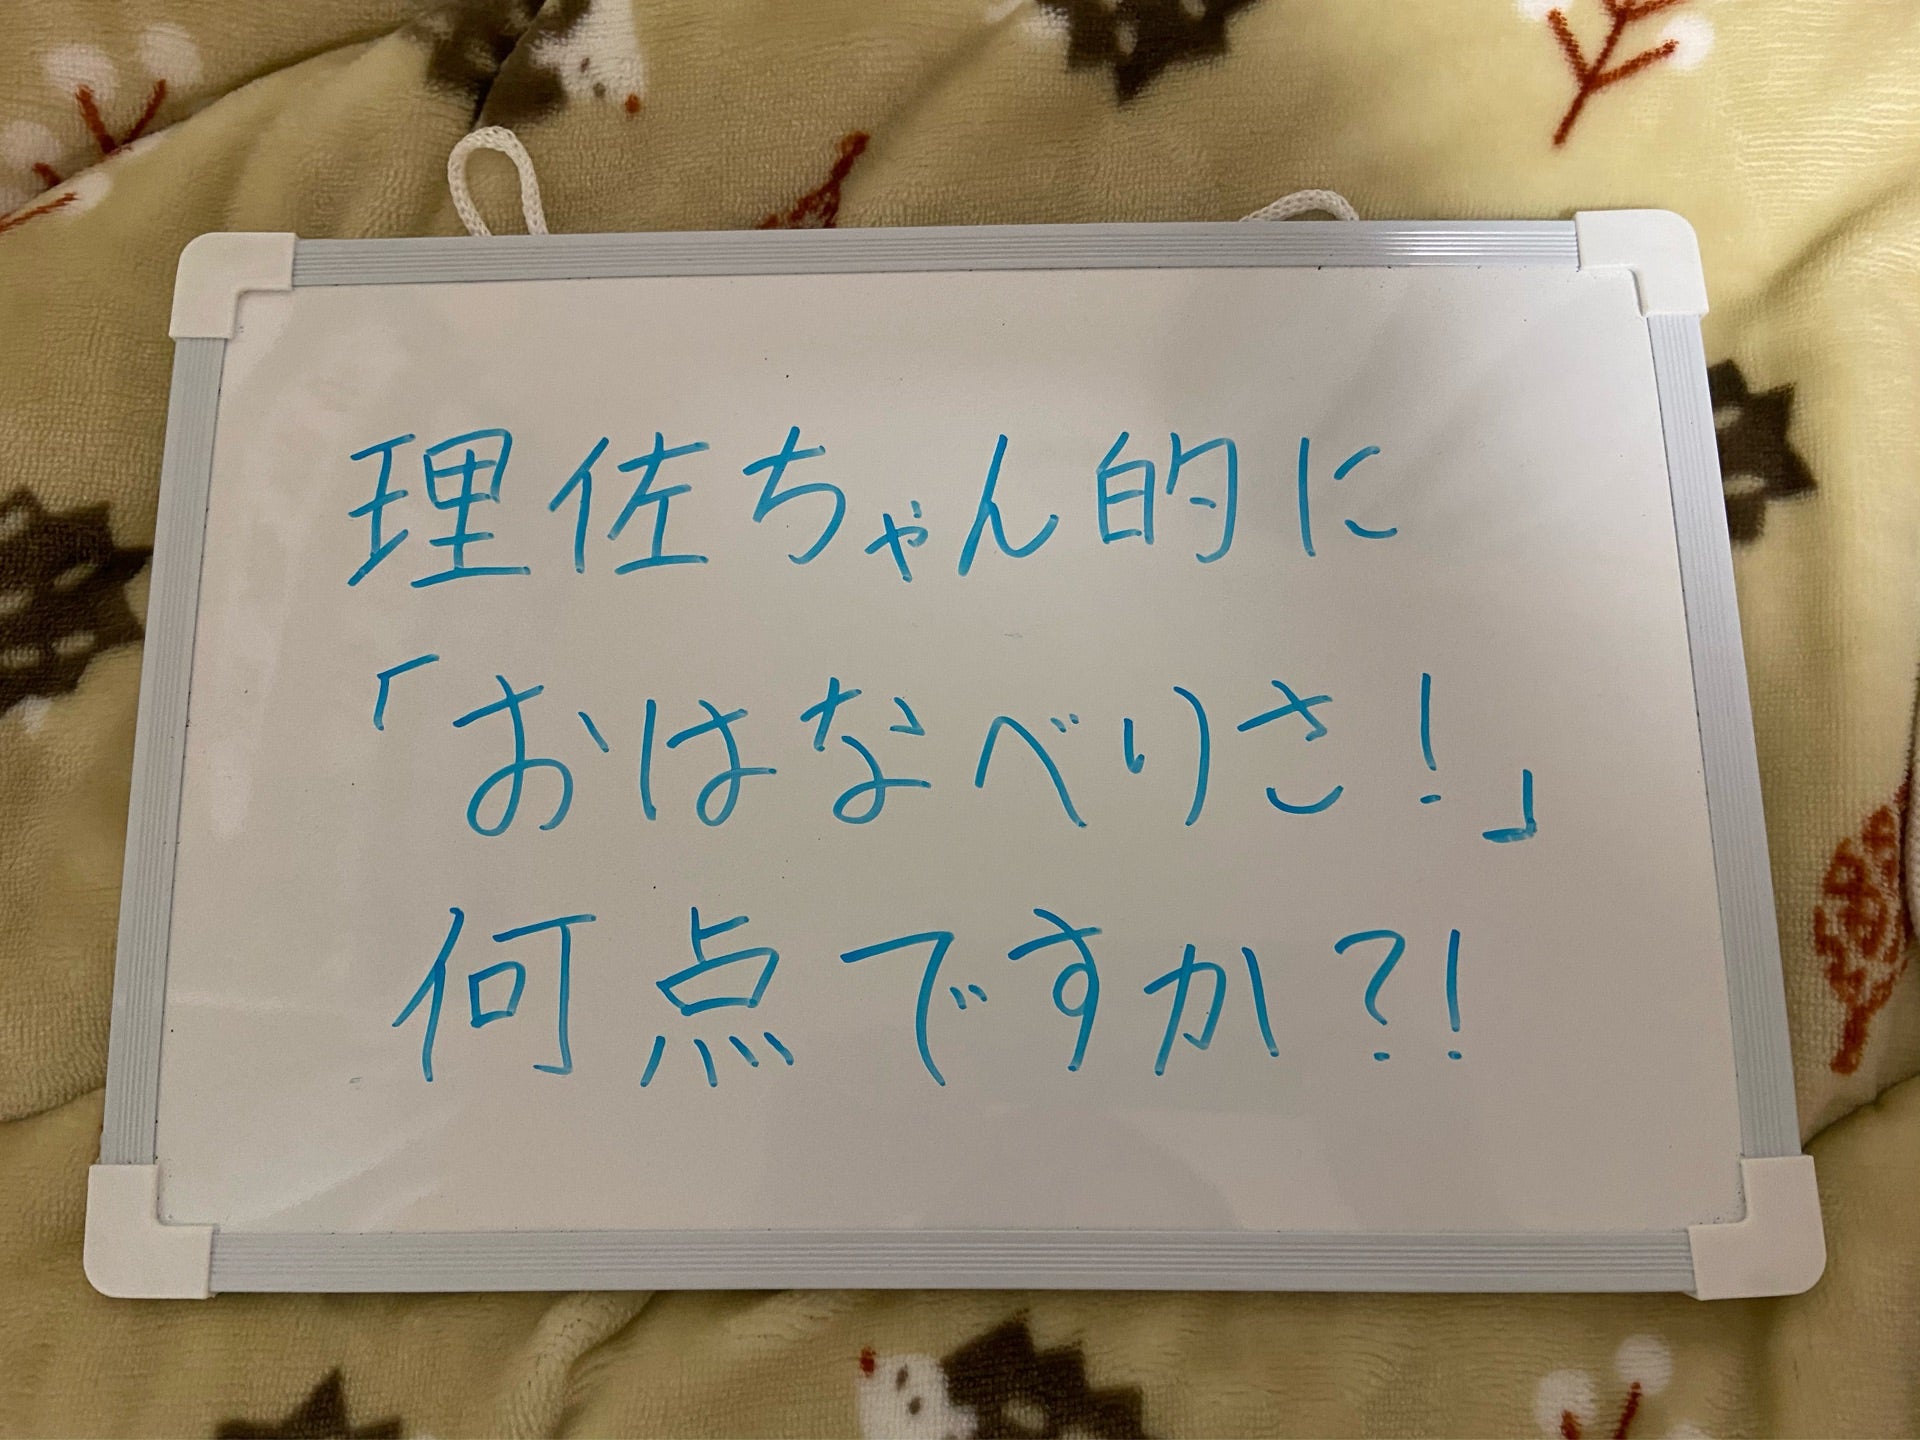 理佐ちゃん的に
「おはなべりさ！」
何点ですか？！